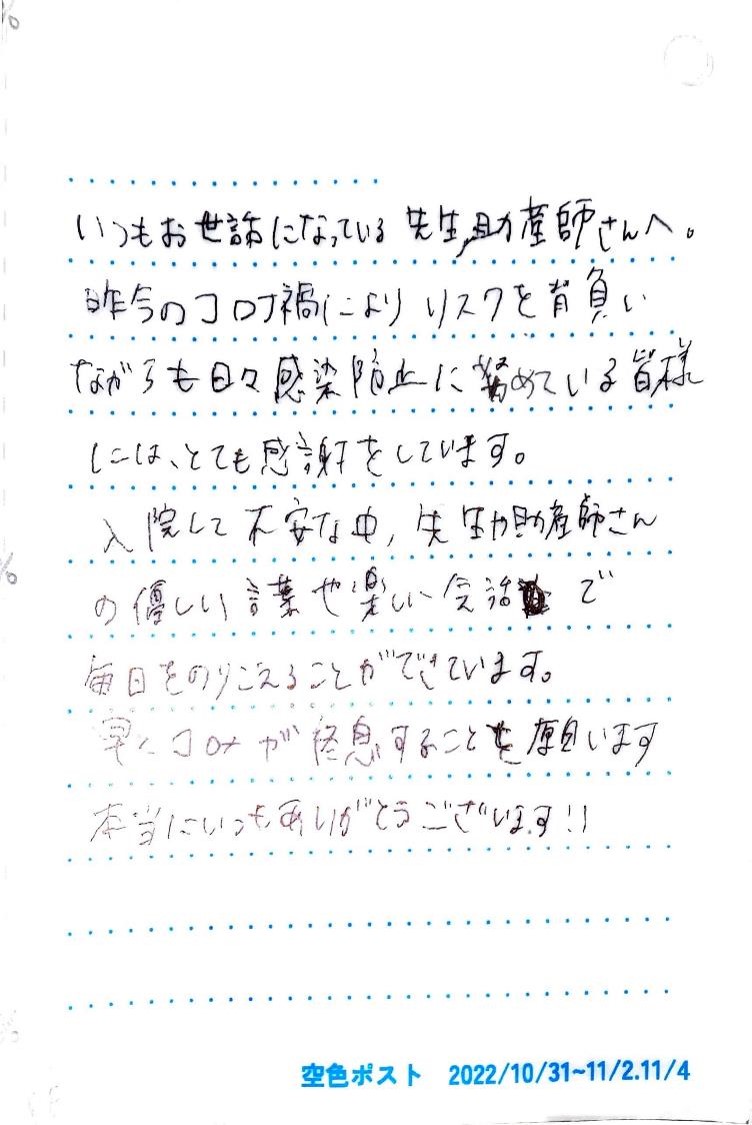 いつもお世話になっている 先生,助産師さんへ。
昨今のコロナ禍により リスクを背負い
ながらも日々感染防止に務めている皆様
には、とても感謝をしています。
入院して不安な中, 先生や助産師さん
の優しい言葉や楽しい会話で
毎日をのりこえることができています。
早くコロナが終息することを願います
本当にいつもありがとうございます!!
空色ポスト 2022/10/31~11/2.11/4